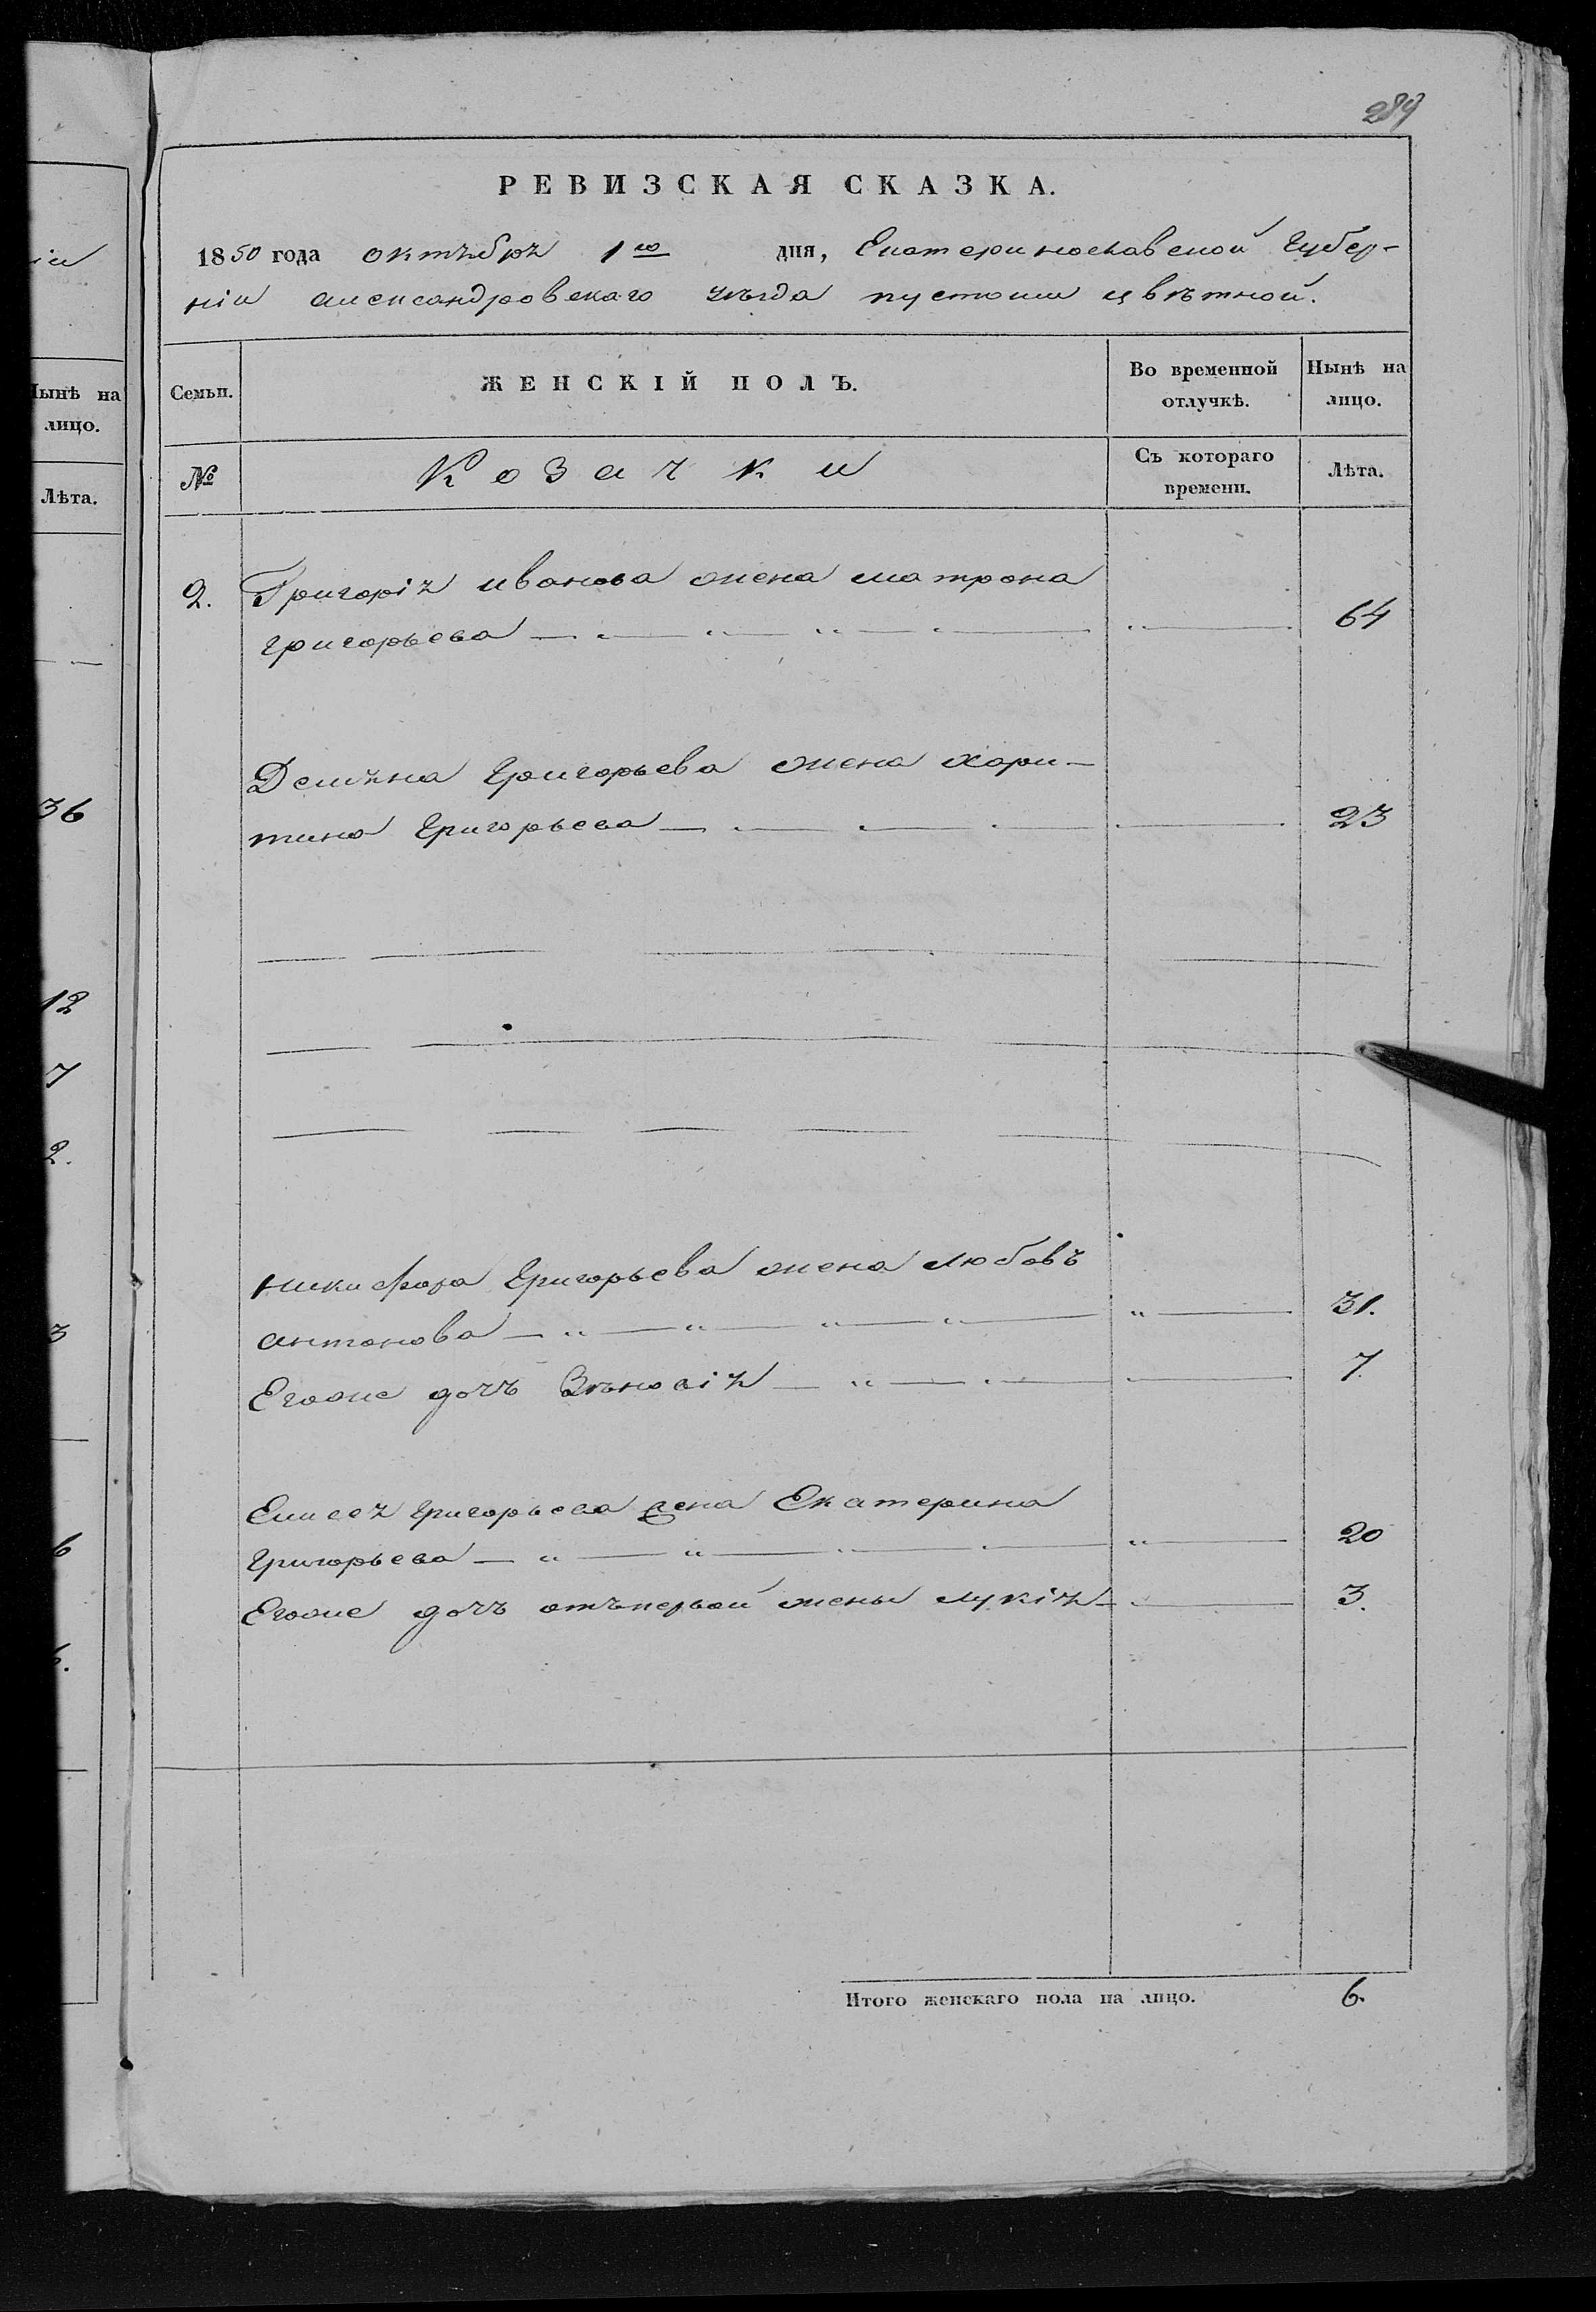 289
РЕВИЗСКАЯ СКАЗКА.
1850 года октября 1го дня, Екатеринославской Губер-
ніи александровскаго уѣзда пустоши цвѣтной.
Семьи.
ЖЕНСКІЙ ПОЛЪ.
Во временной отлучкѣ.
Нынѣ на лицо.
№
Козачки
Съ котораго времени.
Лѣта.
2. Григорія иванова жена матрона
григорьева 64
Демяна Григорьева жена хари-
тина Григорьева 23
никифора Григорьева жена любовъ
антонова 31.
Егоже дочъ Зѣновія 7.
Елисея григорьева жена Екатерина
Григорьева 20
Егоже дочъ отъпервой жены лукія 3.
Итого женскаго пола на лицо. 6.
іи
Нынѣ на
лицо.
Лѣта.
36
12
7
2.
3
6